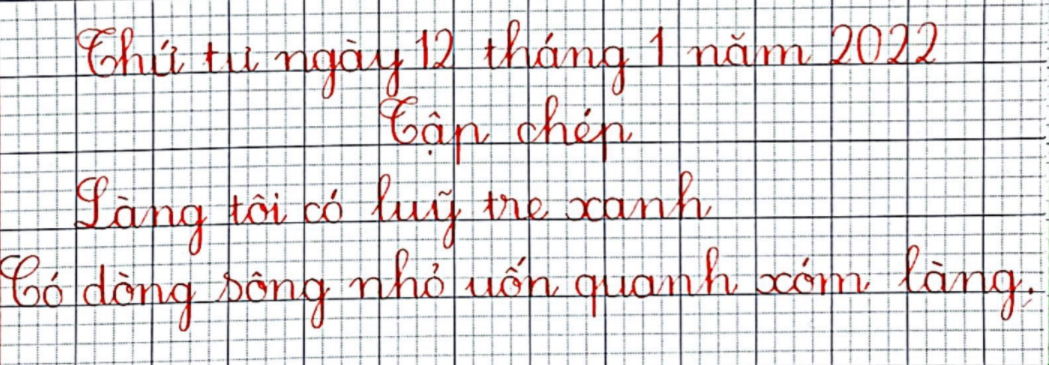 Thứ tư ngày 12 tháng 1 năm 2022
Tập chép
Làng tôi có luỹ tre xanh
Có dòng sông nhỏ uốn quanh xóm làng.